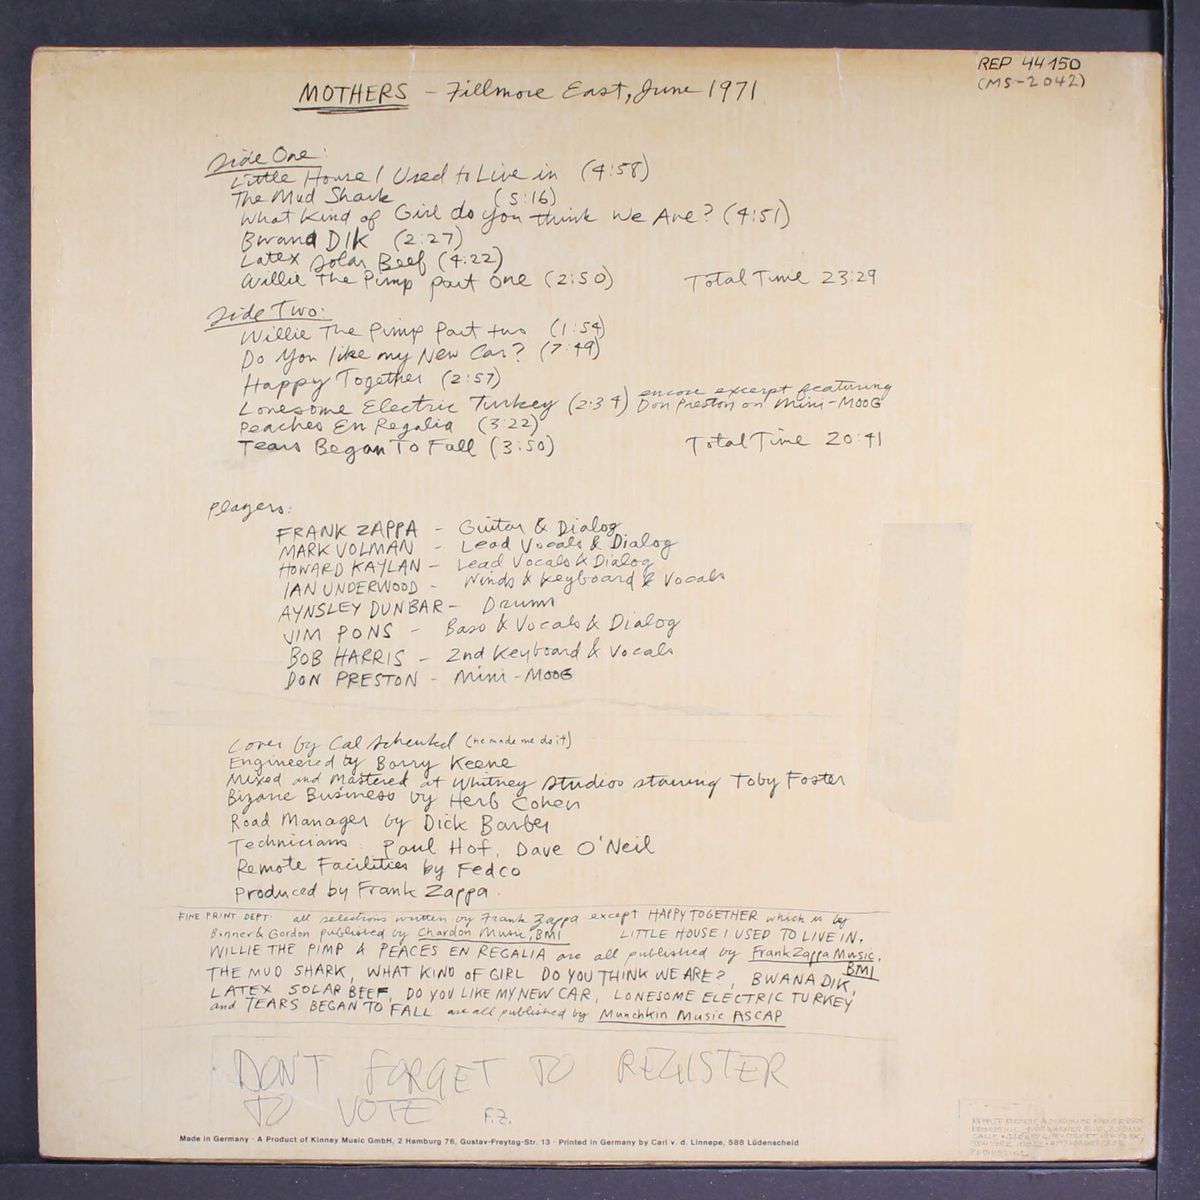 REP 44150
(MS-2042)
MOTHERS - Fillmore East, June 1971
Side One:
Little House I Used to Live in (4:58)
The Mud Shark (5:16)
What Kind of Girl do you think We Are? (4:51)
Bwana DIK (2:27)
Latex Solar Beef (4:22)
Willie The Pimp part One (2:50) Total Time 23:29
Side Two:
Willie The Pimp Part two (1:54)
Do You like my New Car? (7:49)
Happy Together (2:57)
Lonesome Electric Turkey (2:34) encore excerpt featuring
Don Preston on Mini-MOOG
Peaches En Regalia (3:22)
Tears Began To Fall (3:50) Total Time 20:41
Players:
FRANK ZAPPA - Guitar & Dialog
MARK VOLMAN - Lead Vocals & Dialog
HOWARD KAYLAN - Lead Vocals & Dialog
IAN UNDERWOOD - Winds & Keyboard & Vocals
AYNSLEY DUNBAR - Drums
JIM PONS - Bass & Vocals & Dialog
BOB HARRIS - 2nd Keyboard & Vocals
DON PRESTON - Mini-MOOG
Cover by Cal Schenkel (he made me do it)
Engineered by Barry Keene
Mixed and Mastered at Whitney Studios starring Toby Foster
Bizarre Business by Herb Cohen
Road Manager by Dick Barber
Technicians: Paul Hof, Dave O'Neil
Remote Facilities by Fedco
Produced by Frank Zappa.
FINE PRINT DEPT: all selections written by Frank Zappa except HAPPY TOGETHER which is by
Bonner & Gordon published by Chardon Music, BMI LITTLE HOUSE I USED TO LIVE IN,
WILLIE THE PIMP & PEACES EN REGALIA are all published by Frank Zappa Music,
BMI
THE MUD SHARK, WHAT KIND OF GIRL DO YOU THINK WE ARE?, BWANA DIK,
LATEX SOLAR BEEF, DO YOU LIKE MY NEW CAR, LONESOME ELECTRIC TURKEY
and TEARS BEGAN TO FALL are all published by Munchkin Music ASCAP
DON'T FORGET TO REGISTER
TO VOTE F.Z.
Made in Germany · A Product of Kinney Music GmbH, 2 Hamburg 76, Gustav-Freytag-Str. 13 · Printed in Germany by Carl v. d. Linnepe, 588 Lüdenscheid